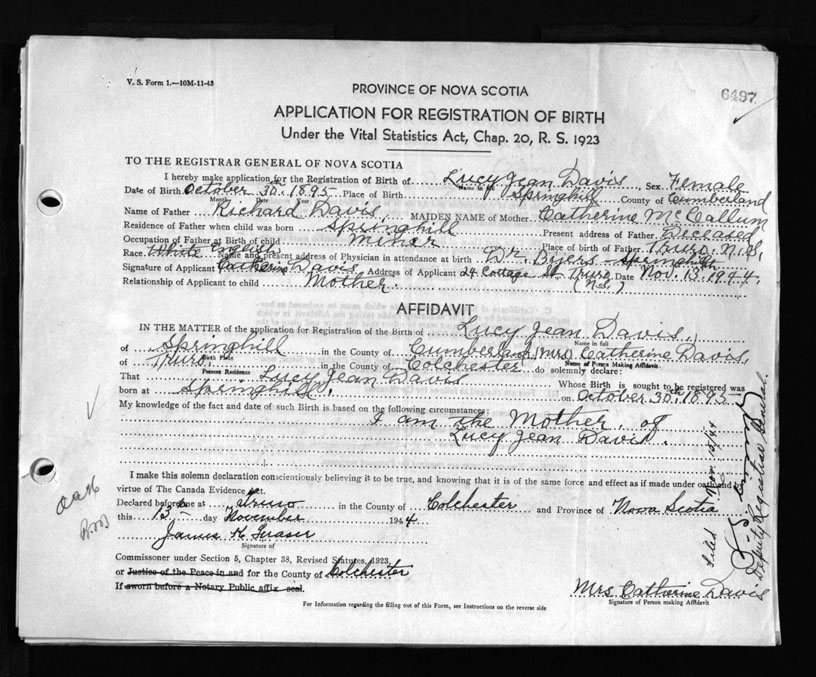 V. S. Form 1.—10M-11-43
PROVINCE OF NOVA SCOTIA
6497
APPLICATION FOR REGISTRATION OF BIRTH
Under the Vital Statistics Act, Chap. 20, R. S. 1923
TO THE REGISTRAR GENERAL OF NOVA SCOTIA
I hereby make application for the Registration of Birth of Lucy Jean Davis, Sex Female
Date of Birth October 30, 1895 Place of Birth Springhill County of Cumberland
Month Date Year
Name of Father Richard Davis, MAIDEN NAME of Mother Catherine McCallum
Residence of Father when child was born Springhill Present address of Father Deceased
Occupation of Father at Birth of child Miner Place of Birth of Father Truro, N.S.
Race White Name and present address of Physician in attendance at birth Dr. Byers - Springhill
Signature of Applicant Catherine Davis Address of Applicant 24 Cottage St. Truro, Date Nov. 13, 1944.
Relationship of Applicant to child Mother. (N.S.)
AFFIDAVIT
IN THE MATTER of the application for Registration of the Birth of Lucy Jean Davis,
Name in full
of Springhill in the County of Cumberland (Mrs) Catherine Davis,
Birth Place Name of Person Making Affidavit
of Truro in the County of Colchester do solemnly declare:
Persons Residence
That Lucy Jean Davis Whose Birth is sought to be registered was
born at Springhill, on October 30th, 1895
My knowledge of the fact and date of such Birth is based on the following circumstances:
I am the Mother of
Lucy Jean Davis.
I make this solemn declaration conscientiously believing it to be true, and knowing that it is of the same force and effect as if made under oath and by
virtue of The Canada Evidence Act.
Declared before me at Truro in the County of Colchester and Province of Nova Scotia
this 13th day November 1944
James H. Fraser
Signature of
Commissioner under Section 5, Chapter 38, Revised Statutes, 1923,
or Justice of the Peace in and for the County of Colchester
If sworn before a Notary Public affix seal.
Mrs. Catherine Davis
Signature of Person making Affidavit
For Information regarding the filling out of this Form, see Instructions on the reverse side
Filed Nov 15/44
Deputy Registrar General